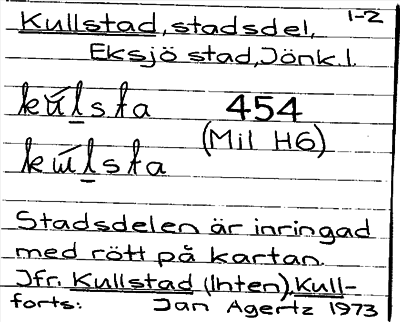 Kullstad, stadsdel, 1-2
Eksjö stad, Jönk.l.
kúlsta 454
(Mil H6)
kúlsta
Stadsdelen är inringad
med rött på kartan.
Jfr. Kullstad (Inten), Kull-
forts: Jan Agertz 1973